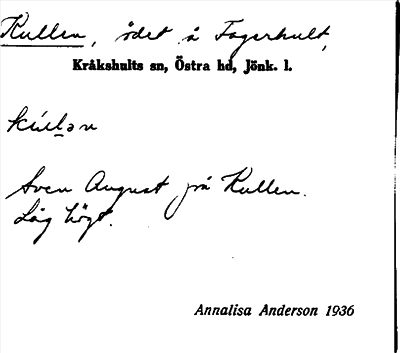 Kullen, ödet å Fagerhult,
Kråkshults sn, Östra hd, Jönk. l.
kúlən
Sven August på Kullen.
Låg högt.
Annalisa Anderson 1936